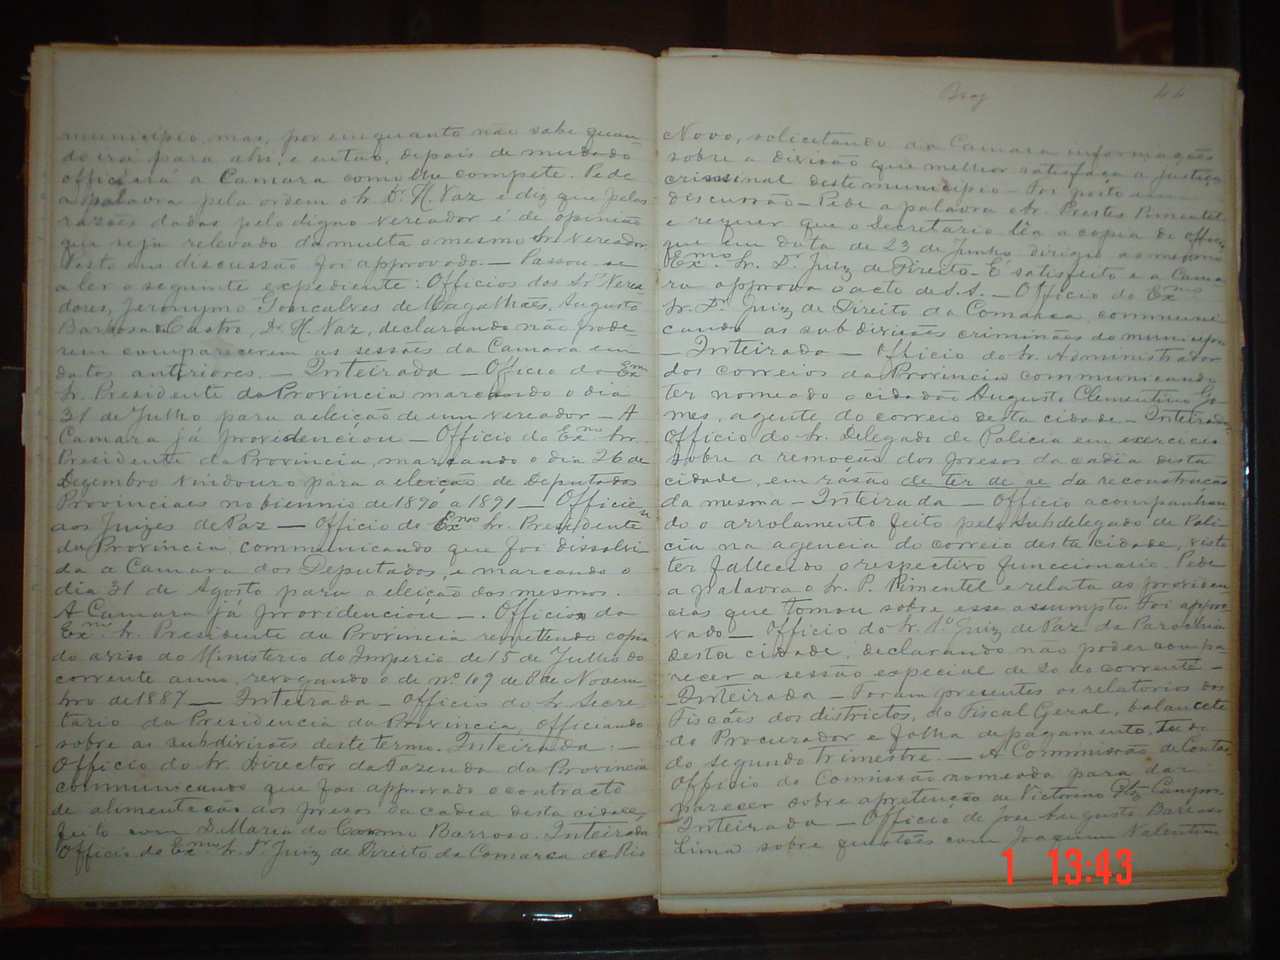 municipio mas, por emquanto não sabe quan-
do irá para ahi, e então, depois de mudado
officiará a Camara como lhe compete. Pede
a palavra pela ordem o Sr. Dr. H. Vaz e diz que pelas
razões dadas pelo digno vereador é de opinião
que seja relevado da multa o mesmo Sr. Vereador.
Posto em discussão foi approvado. — Passou-se
a ler o seguinte expediente: Officios dos Srs. Verea
dores, Jeronymo Gonçalves de Magalhães, Augusto
Barbosa de Castro, Dr. H. Vaz, declarando não pode
rem comparecerem as sessões da Camara em
datas anteriores. — Inteirada — Officio do Exmo
Sr. Presidente da Provincia marcando o dia
31 de Julho para a eleição de um vereador — A
Camara já providenciou — Officio do Exmo Snr.
Presidente da Provincia, marcando o dia 26 de
Dezembro vindouro para a eleição de Deputados
Provinciaes no biennio de 1890 a 1891 — Officie-se
aos Juizes de Paz — Officio do Exmo Sr. Presidente
da Provincia, communicando que foi dissolvi
da a Camara dos Deputados, e marcando o
dia 31 de Agosto para a eleição dos mesmos.
A Camara já providenciou —. Officio do
Exmo Sr. Presidente da Provincia remettendo copia
do aviso do Ministerio do Imperio de 15 de Julho do
corrente anno, revogando o de nº 109 de 8 de Novem-
bro de 1887 — Inteirada — Officio do Sr. Secre
tario da Presidencia da Provincia, officiando
sobre as subdivisões deste termo. Inteirada. —
Officio do Sr. Director da Fazenda da Provincia
communicando que foi approvado o contracto
de alimentação aos presos da cadea desta cidade,
feito com D. Maria do Carmo Barroso. Inteirada
Officio do Exmo Sr. Dr. Juiz de Direito da Comarca de Rio
44
Novo, solicitando da Camara informações
sobre a divisão que melhor satisfaça a justiça
criminal deste municipio — Foi posto em
discussão — Pede a palavra o Sr. Prestes Pimentel
e requer que o Secretario lêa a copia do officio
que em data de 23 de Junho dirigio ao mesmo
Exmo Sr. Dr. Juiz de Direito — É satisfeito e a Cama
ra approva o acto de S.S. — Officio do Exmo
Sr. Dr. Juiz de Direito da Comarca, communi
cando as subdivisões criminaes do municipio
— Inteirada — Officio do Sr. Administrador
dos correios da Provincia communicando
ter nomeado o cidadão Augusto Clementino Go-
mes, agente do correio desta cidade — Inteirada
Officio do Sr. Delegado de Policia em exercicio
sobre a remoção dos presos da cadia desta
cidade, em rásão de ter de se da reconstrucção
da mesma — Inteirada — Officio acompanhan
do o arrolamento feito pelo subdelegado de Poli
cia na agencia do correio desta cidade, visto
ter fallecido o respectivo funccionario. Pede
a palavra o Sr. P. Pimentel e relata as providen
cias que tomou sobre esse assumpto. Foi appro
vado — Officio do Sr. 1º Juiz de Paz da Parochia
desta cidade, declarando não poder compa
recer a sessão especial de 20 do corrente —
Inteirada — Foram presentes os relatorios dos
Fiscaes dos districtos, do Fiscal Geral, balancete
do Procurador e folha de pagamento, tudo
do segundo trimestre. — A Commissão de Contas
Officio da Comissão nomeada para dar
parecer sobre a pretenção de Victorino
Inteirada — Officio de José Augusto Barroso
Lima sobre questões com Joaquim Valentim
1 13:43